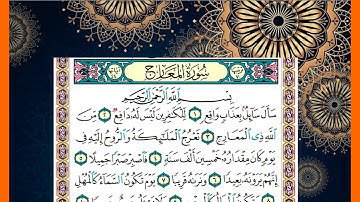 سُورَةُ المَعَارِجِ
بِسْمِ اللَّهِ الرَّحْمَٰنِ الرَّحِيمِ
سَأَلَ سَآئِلٌۢ بِعَذَابٍ وَاقِعٍ ١ لِّلْكَٰفِرِينَ لَيْسَ لَهُۥ دَافِعٌ ٢ مِّنَ
اللَّهِ ذِي الْمَعَارِجِ ٣ تَعْرُجُ الْمَلَٰٓئِكَةُ وَالرُّوحُ إِلَيْهِ فِي
يَوْمٍ كَانَ مِقْدَارُهُۥ خَمْسِينَ أَلْفَ سَنَةٍ ٤ فَاصْبِرْ صَبْرًا جَمِيلًا ٥
إِنَّهُمْ يَرَوْنَهُۥ بَعِيدًا ٦ وَنَرَىٰهُ قَرِيبًا ٧ يَوْمَ تَكُونُ السَّمَآءُ كَالْمُهْلِ